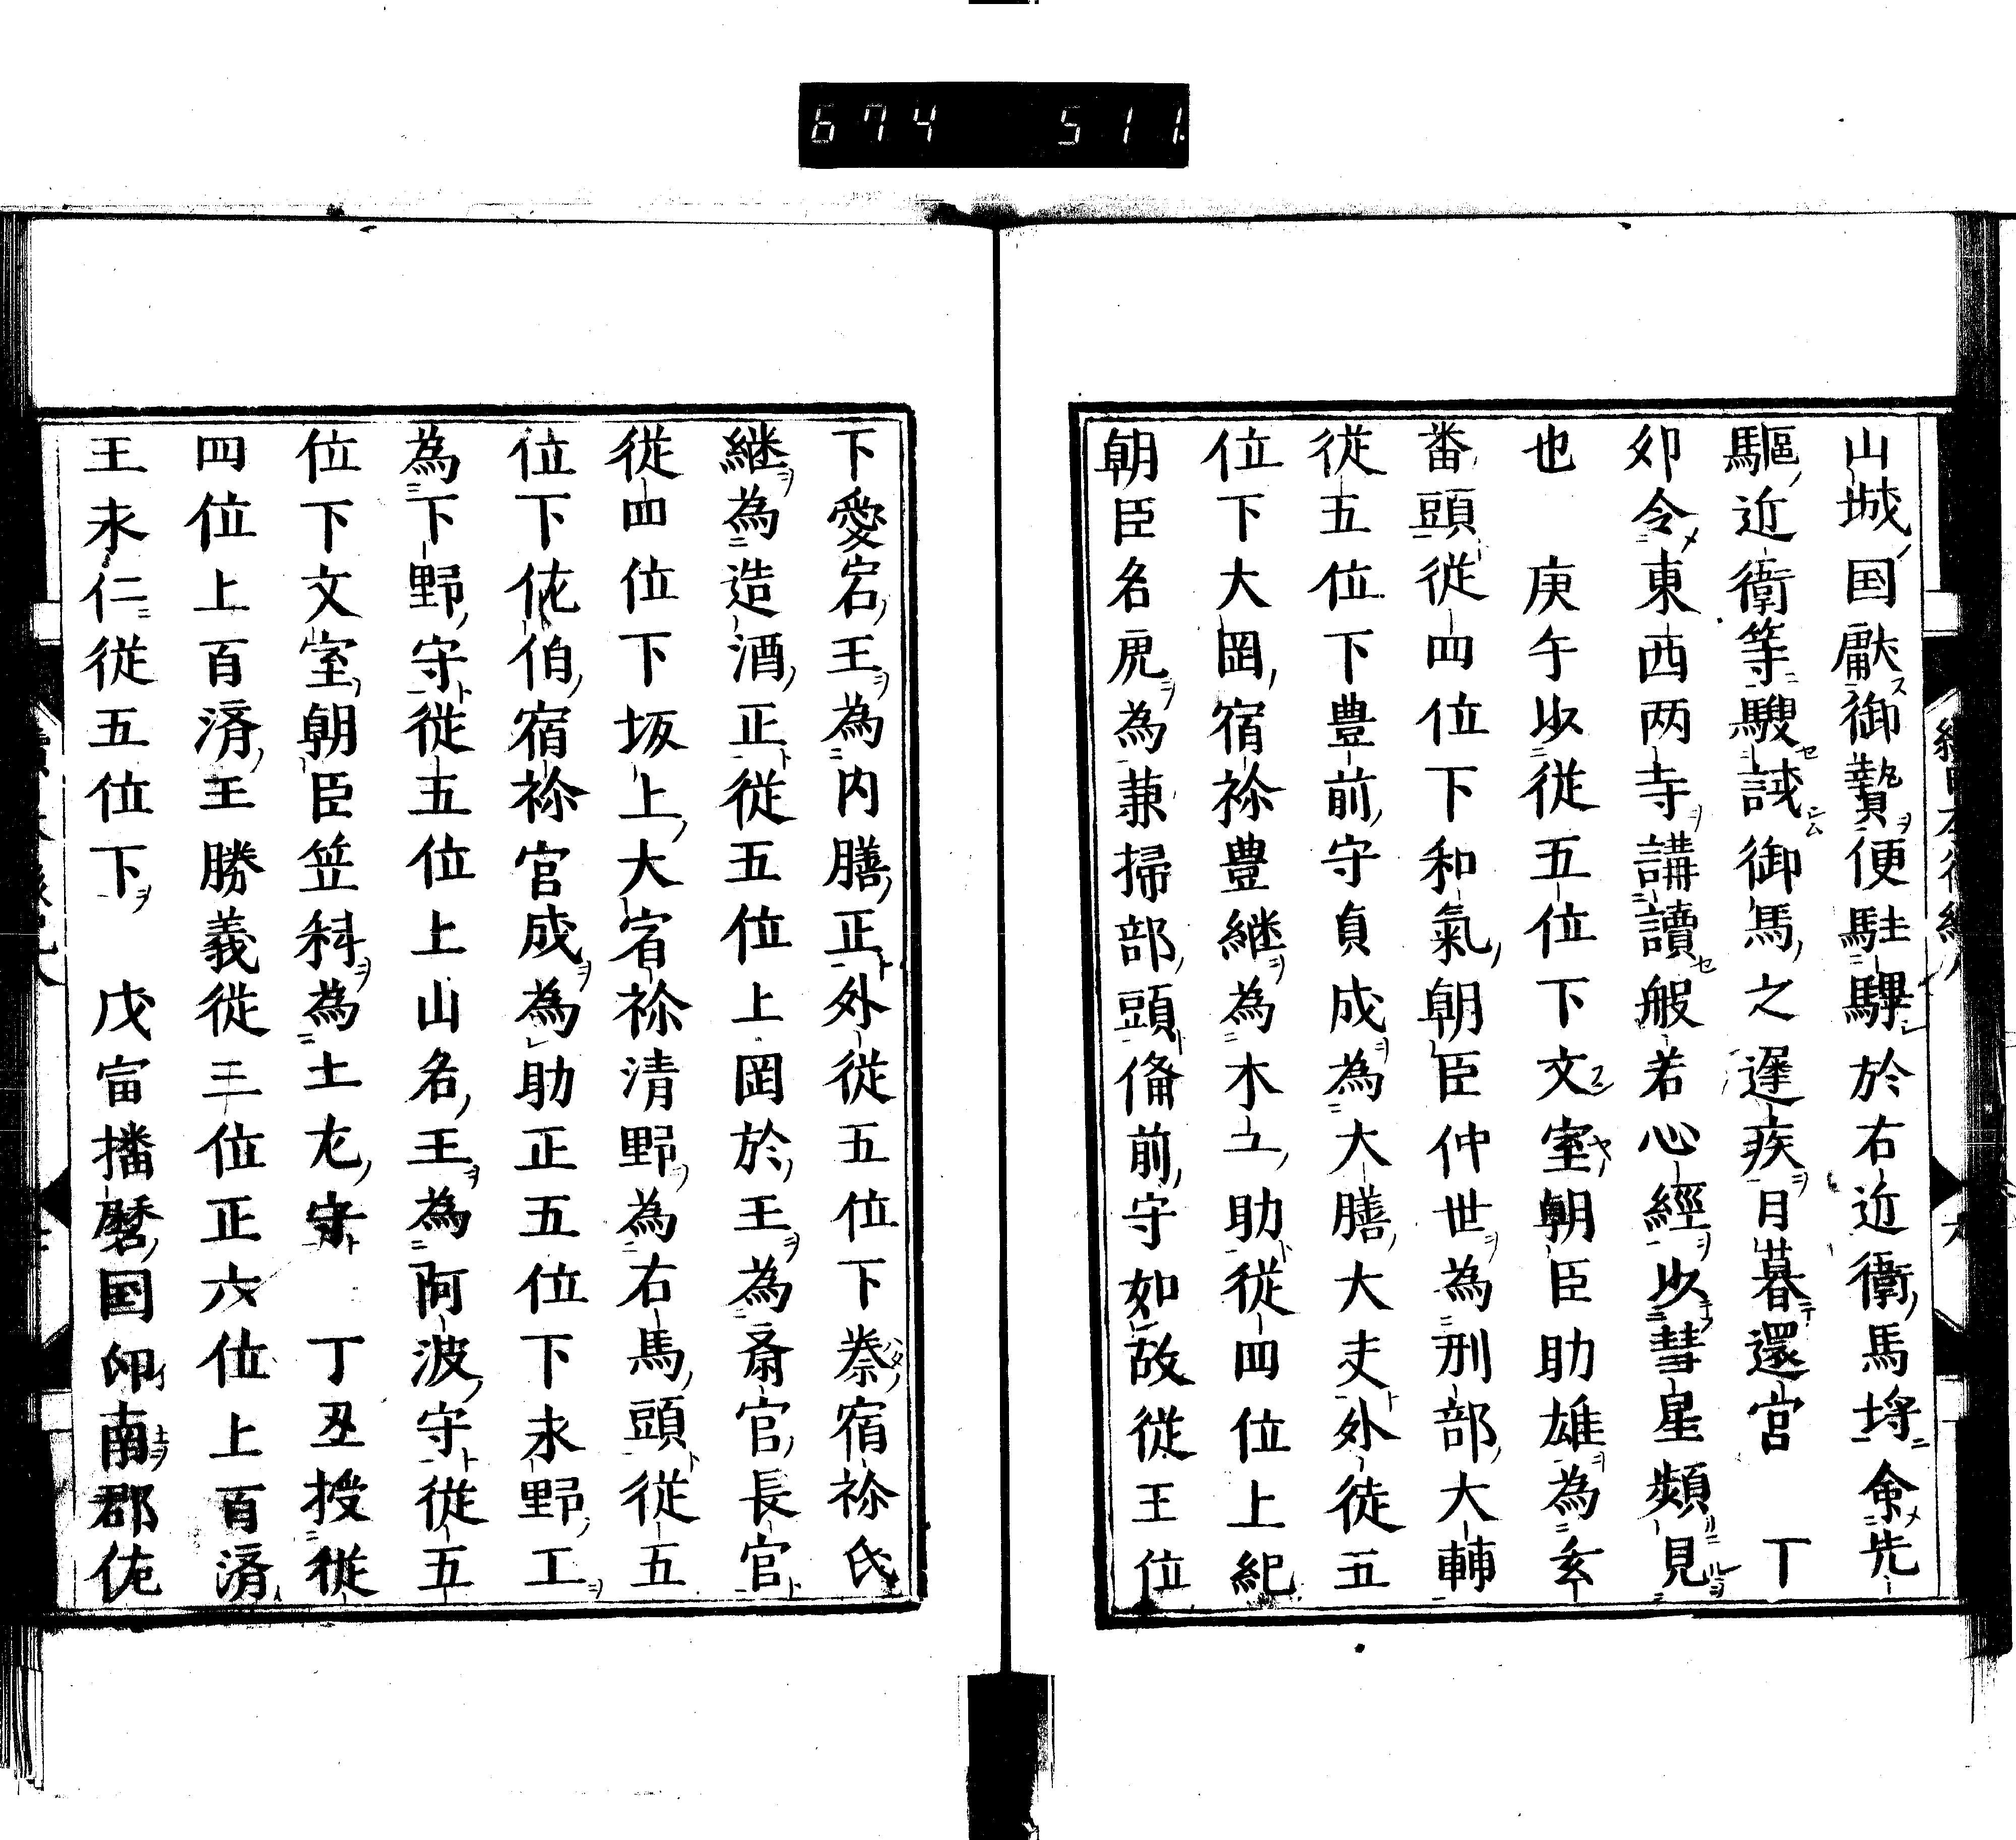 674 511
山城国献御贄便駐驆於右近衛馬埒命先
驅近衛等騪試御馬之遲疾日暮還宮　丁
夘令東西两寺講讀般若心經以彗星頻見
也　庚午以從五位下文室朝臣助雄為玄
番頭從四位下和氣朝臣仲世為刑部大輔
從五位下豊前守貞成為大膳大夫外從五
位下大岡宿祢豊継為木工助從四位上紀
朝臣名虎為兼掃部頭俻前守如故從王位
下愛宕王為内膳正外從五位下秦宿祢氏
継為造酒正從五位上岡於王為斎官長官
從四位下坂上大宿祢清野為右馬頭從五
位下佐伯宿祢宮成為助正五位下永野工
為下野守從五位上山名王為阿波守從五
位下文室朝臣笠科為土左守　丁丑授從
四位上百濟王勝義從三位正六位上百濟
王永仁從五位下　戊寅播磨国印南郡佐